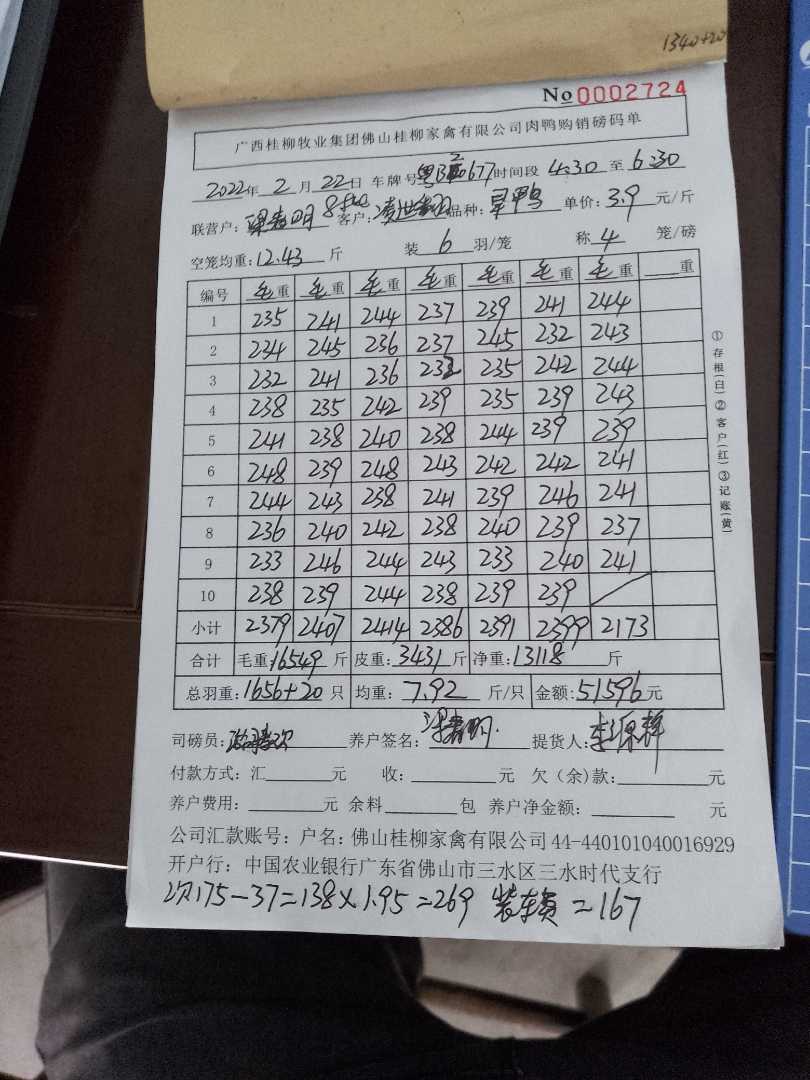 1340+20
No 0002724
广西桂柳牧业集团佛山桂柳家禽有限公司肉鸭购销磅码单
2022年 2 月 22 日 车牌号 677 时间段 4:30 至 6:30
联营户: 客户: 品种: 旱鸭 单价: 3.9 元/斤
空笼均重: 12.43 斤 装 6 羽/笼 称 4 笼/磅
编号 毛重 毛重 毛重 毛重 毛重 毛重 毛重 重
1 235 241 244 237 239 241 244
2 234 245 236 237 245 232 243
3 232 241 236 232 235 242 244
4 238 235 242 239 235 239 243
5 241 238 240 238 244 239 239
6 248 239 248 243 242 242 241
7 244 243 238 241 239 246 241
8 236 240 242 238 240 239 237
9 233 246 244 243 233 240 241
10 238 239 244 238 239 239
小计 2379 2407 2414 2386 2391 2399 2173
合计 毛重: 16549 斤 皮重: 3431 斤 净重: 13118 斤
总羽重: 1656+20 只 均重: 7.92 斤/只 金额: 51596 元
司磅员: 养户签名: 提货人:
付款方式: 汇 元 收: 元 欠(余)款: 元
养户费用: 元 余料 包 养户净金额: 元
公司汇款账号: 户名: 佛山桂柳家禽有限公司 44-440101040016929
开户行: 中国农业银行广东省佛山市三水区三水时代支行
次175-37=138×1.95=269 装车费=167
①存根(白)②客户(红)③记账(黄)